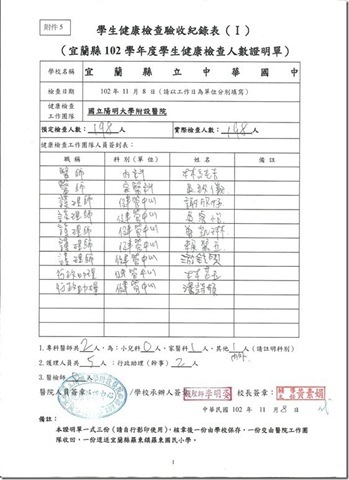 附件 5
學生健康檢查驗收紀錄表（Ⅰ）
（宜蘭縣 102 學年度學生健康檢查人數證明單）
學校名稱 宜蘭縣立中華國中
檢查日期 102 年 11 月 8 日（請以工作日為單位分別填寫）
健康檢查工作團隊 國立陽明大學附設醫院
預定檢查人數：198 人 實際檢查人數：198 人
健康檢查工作團隊人員簽到表：
職稱 科別（單位） 姓名 備註
醫師 內科
醫師 家醫科
護理師 健管中心
護理師 健管中心
護理師 健管中心
護理師 健管中心
護理師 健管中心
行政助理 健管中心
行政助理 健管中心
1.專科醫師共 2 人，為：小兒科 0 人，家醫科 1 人，其他 1 人（請註明科別）
內科
2.護理人員共 5 人；行政助理（幹事） 2 人
3.醫檢師 人
醫院人員簽章 /學校承辦人簽章 李明 校長簽章： 黃素娟
中華民國 102 年 11 月 8 日
備註：
本證明單一式三份（請自行影印使用），核章後一份由學校保存，一份交由醫院工作團
隊收回，一份逕送宜蘭縣羅東鎮羅東國民小學。
1